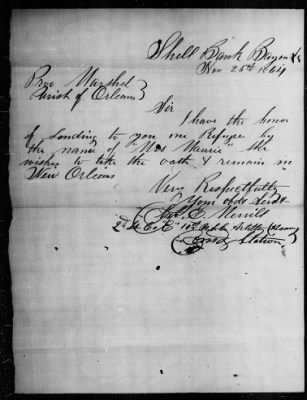 Shell Bank Bayou La
Nov 26th 1864
Prov Marshal
Parish of Orleans
Sir
I have the honor
of sending to you one Refugee by
the name of "Mrs Maurice" She
wishes to take the oath & remain in
New Orleans
Very Respectfully
Your obdt Servt
E. Merrill
2d Lt Co "C" 10th Artillery (Heavy)
Comdg Station